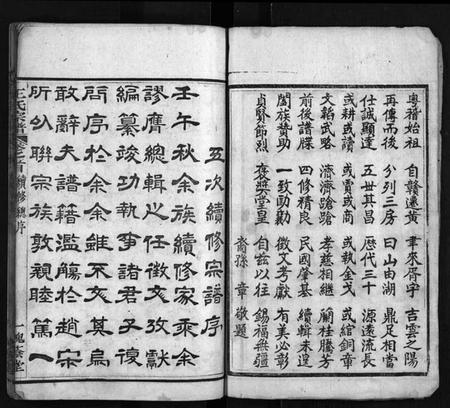 粵稽始祖 自贛遷黄 聿來胥宇 吉雲之陽
再傳而後 分列三房 曰山由湖 鼎足相當
仕誠顯達 五世其昌 歷代三十 源遠流長
或耕或讀 或賈或商 或執金戈 或綰銅章
文韜武略 濟濟蹌蹌 孝慈相繼 蘭桂騰芳
前後譜牒 四修精良 民國肇基 續輯未遑
闔族贊助 一致勷 徵文考獻 有美必彰
貞賢節烈 褒獎堂皇 自玆以往 錫福無疆
裔孫 章 敬題
五次續修宗譜序
壬午秋余族續修家乘余
謬膺總輯之任徵文攷獻
編纂竣功執事諸君子復
問序於余余雖不文其烏
敢辭夫譜籍濫觴於趙宋
所以聯宗族敦親睦篤一
王氏宗譜 卷之首 續修 序 一 槐蔭堂